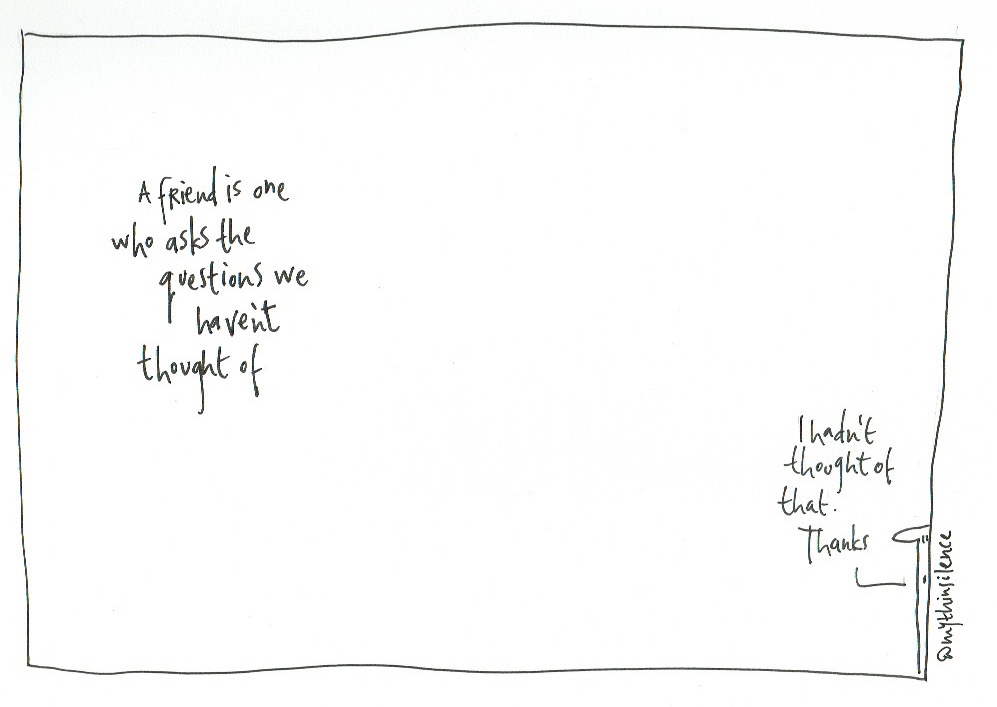 A friend is one
who asks the
questions we
haven't
thought of
I hadn't
thought of
that.
Thanks
@mythinsilence